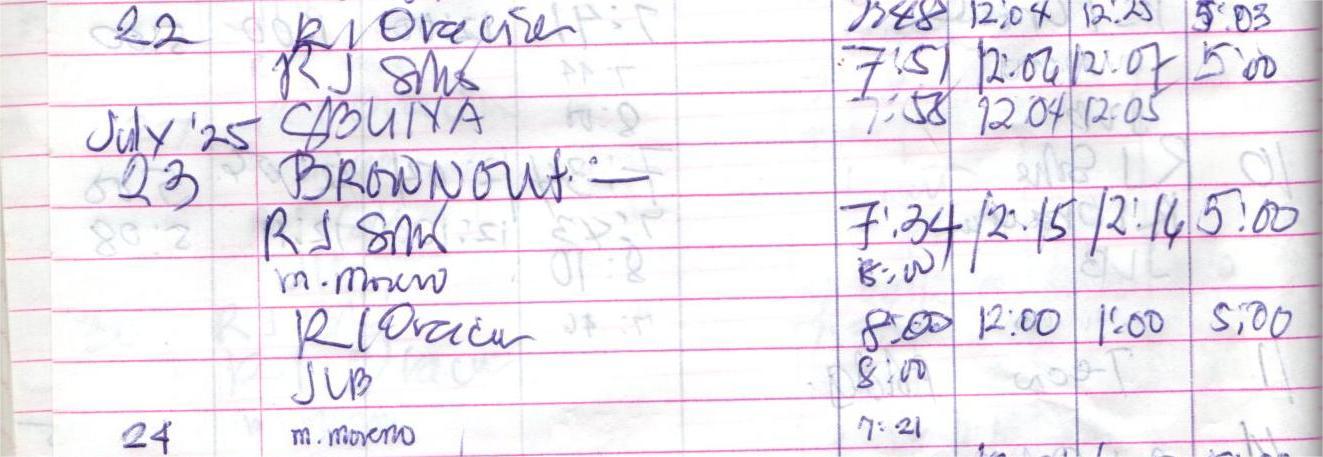 22 RJ Oracion 7:48 12:04 12:25 5:03
RJ 7:51 12:06 12:07 5:00
July '25 CABUIYA 7:58 12:04 12:05
23 BROWNOUT:—
RJ 7:34 12:15 12:16 5:00
m. moreno 8:00
RJ Oracion 8:00 12:00 1:00 5:00
JLB 8:00
24 m. moreno 7:21